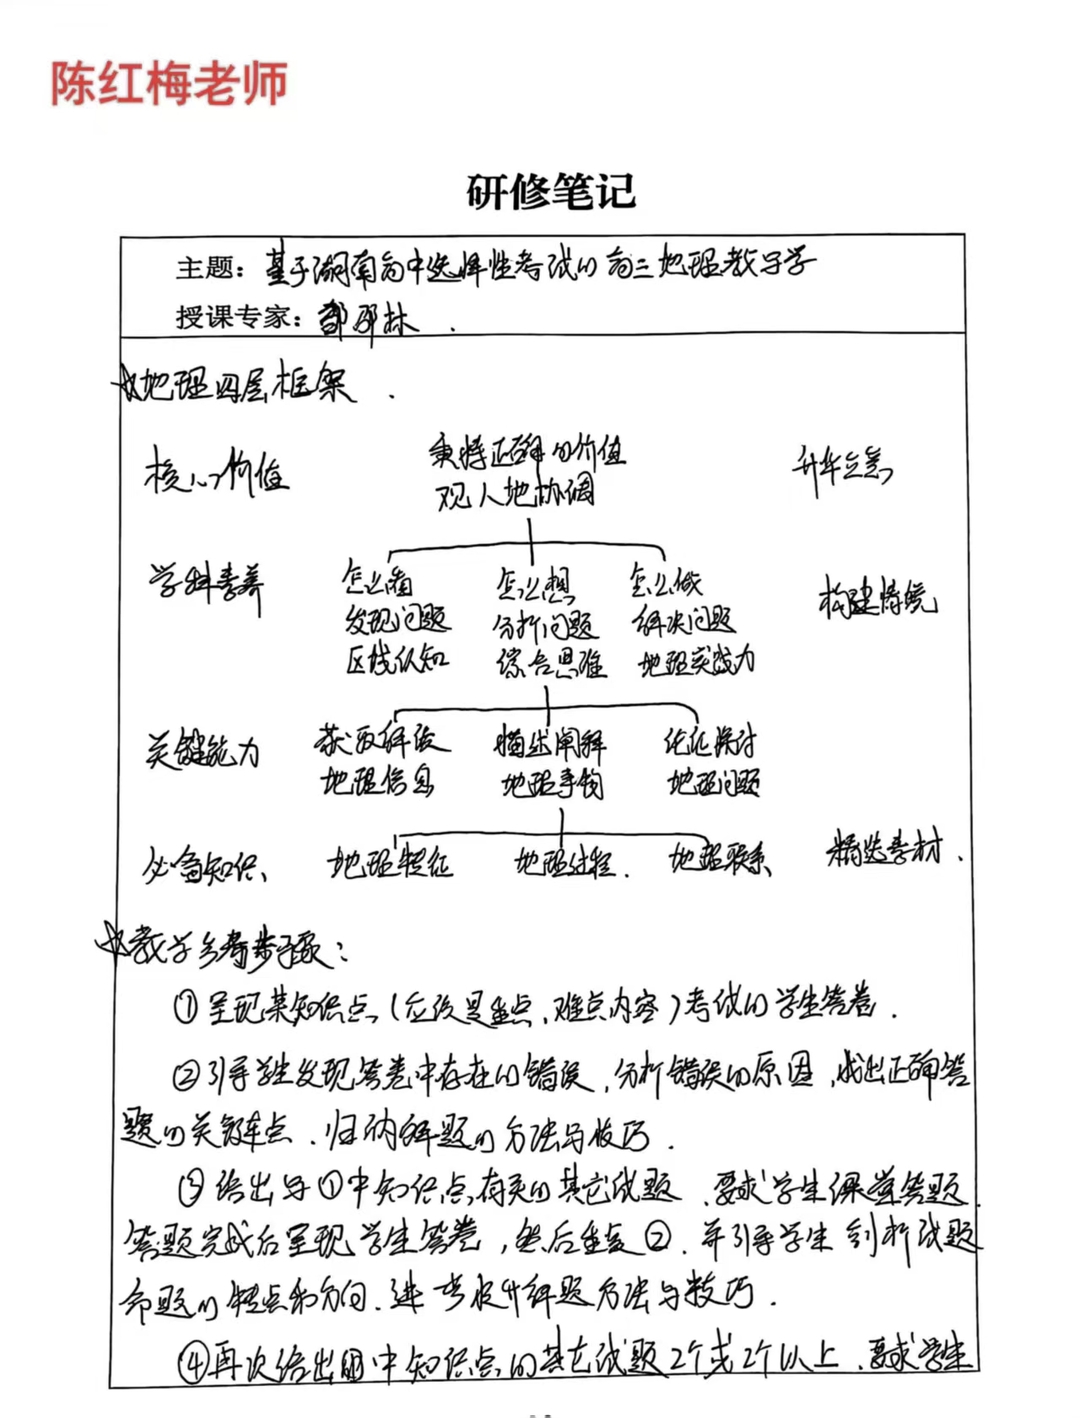 陈红梅老师
研修笔记
主题：基于湖南高中选择性考试的高三地理教与学
授课专家：邹邵林.
☆地理四层框架.
核心价值 秉持正确的价值 升华立意
观人地协调
学科素养 怎么看 怎么想 怎么做 构建情境
发现问题 分析问题 解决问题
区域认知 综合思维 地理实践力
关键能力 获取解读 描述阐释 论证探讨
地理信息 地理事物 地理问题
必备知识 地理特征 地理过程. 地理联系 精选素材.
☆教学参考步骤：
①呈现某知识点(应该是重点、难点内容)考试的学生答卷.
②引导学生发现答卷中存在的错误,分析错误的原因,找出正确答
题的关键点、归纳解题的方法与技巧.
③给出与①中知识点有关的其它试题、要求学生课堂答题.
答题完成后呈现学生答卷,然后重复②、并引导学生剖析试题
命题的特点和方向、进一步提升解题方法与技巧.
④再次给出①中知识点的其它试题2个或2个以上、要求学生